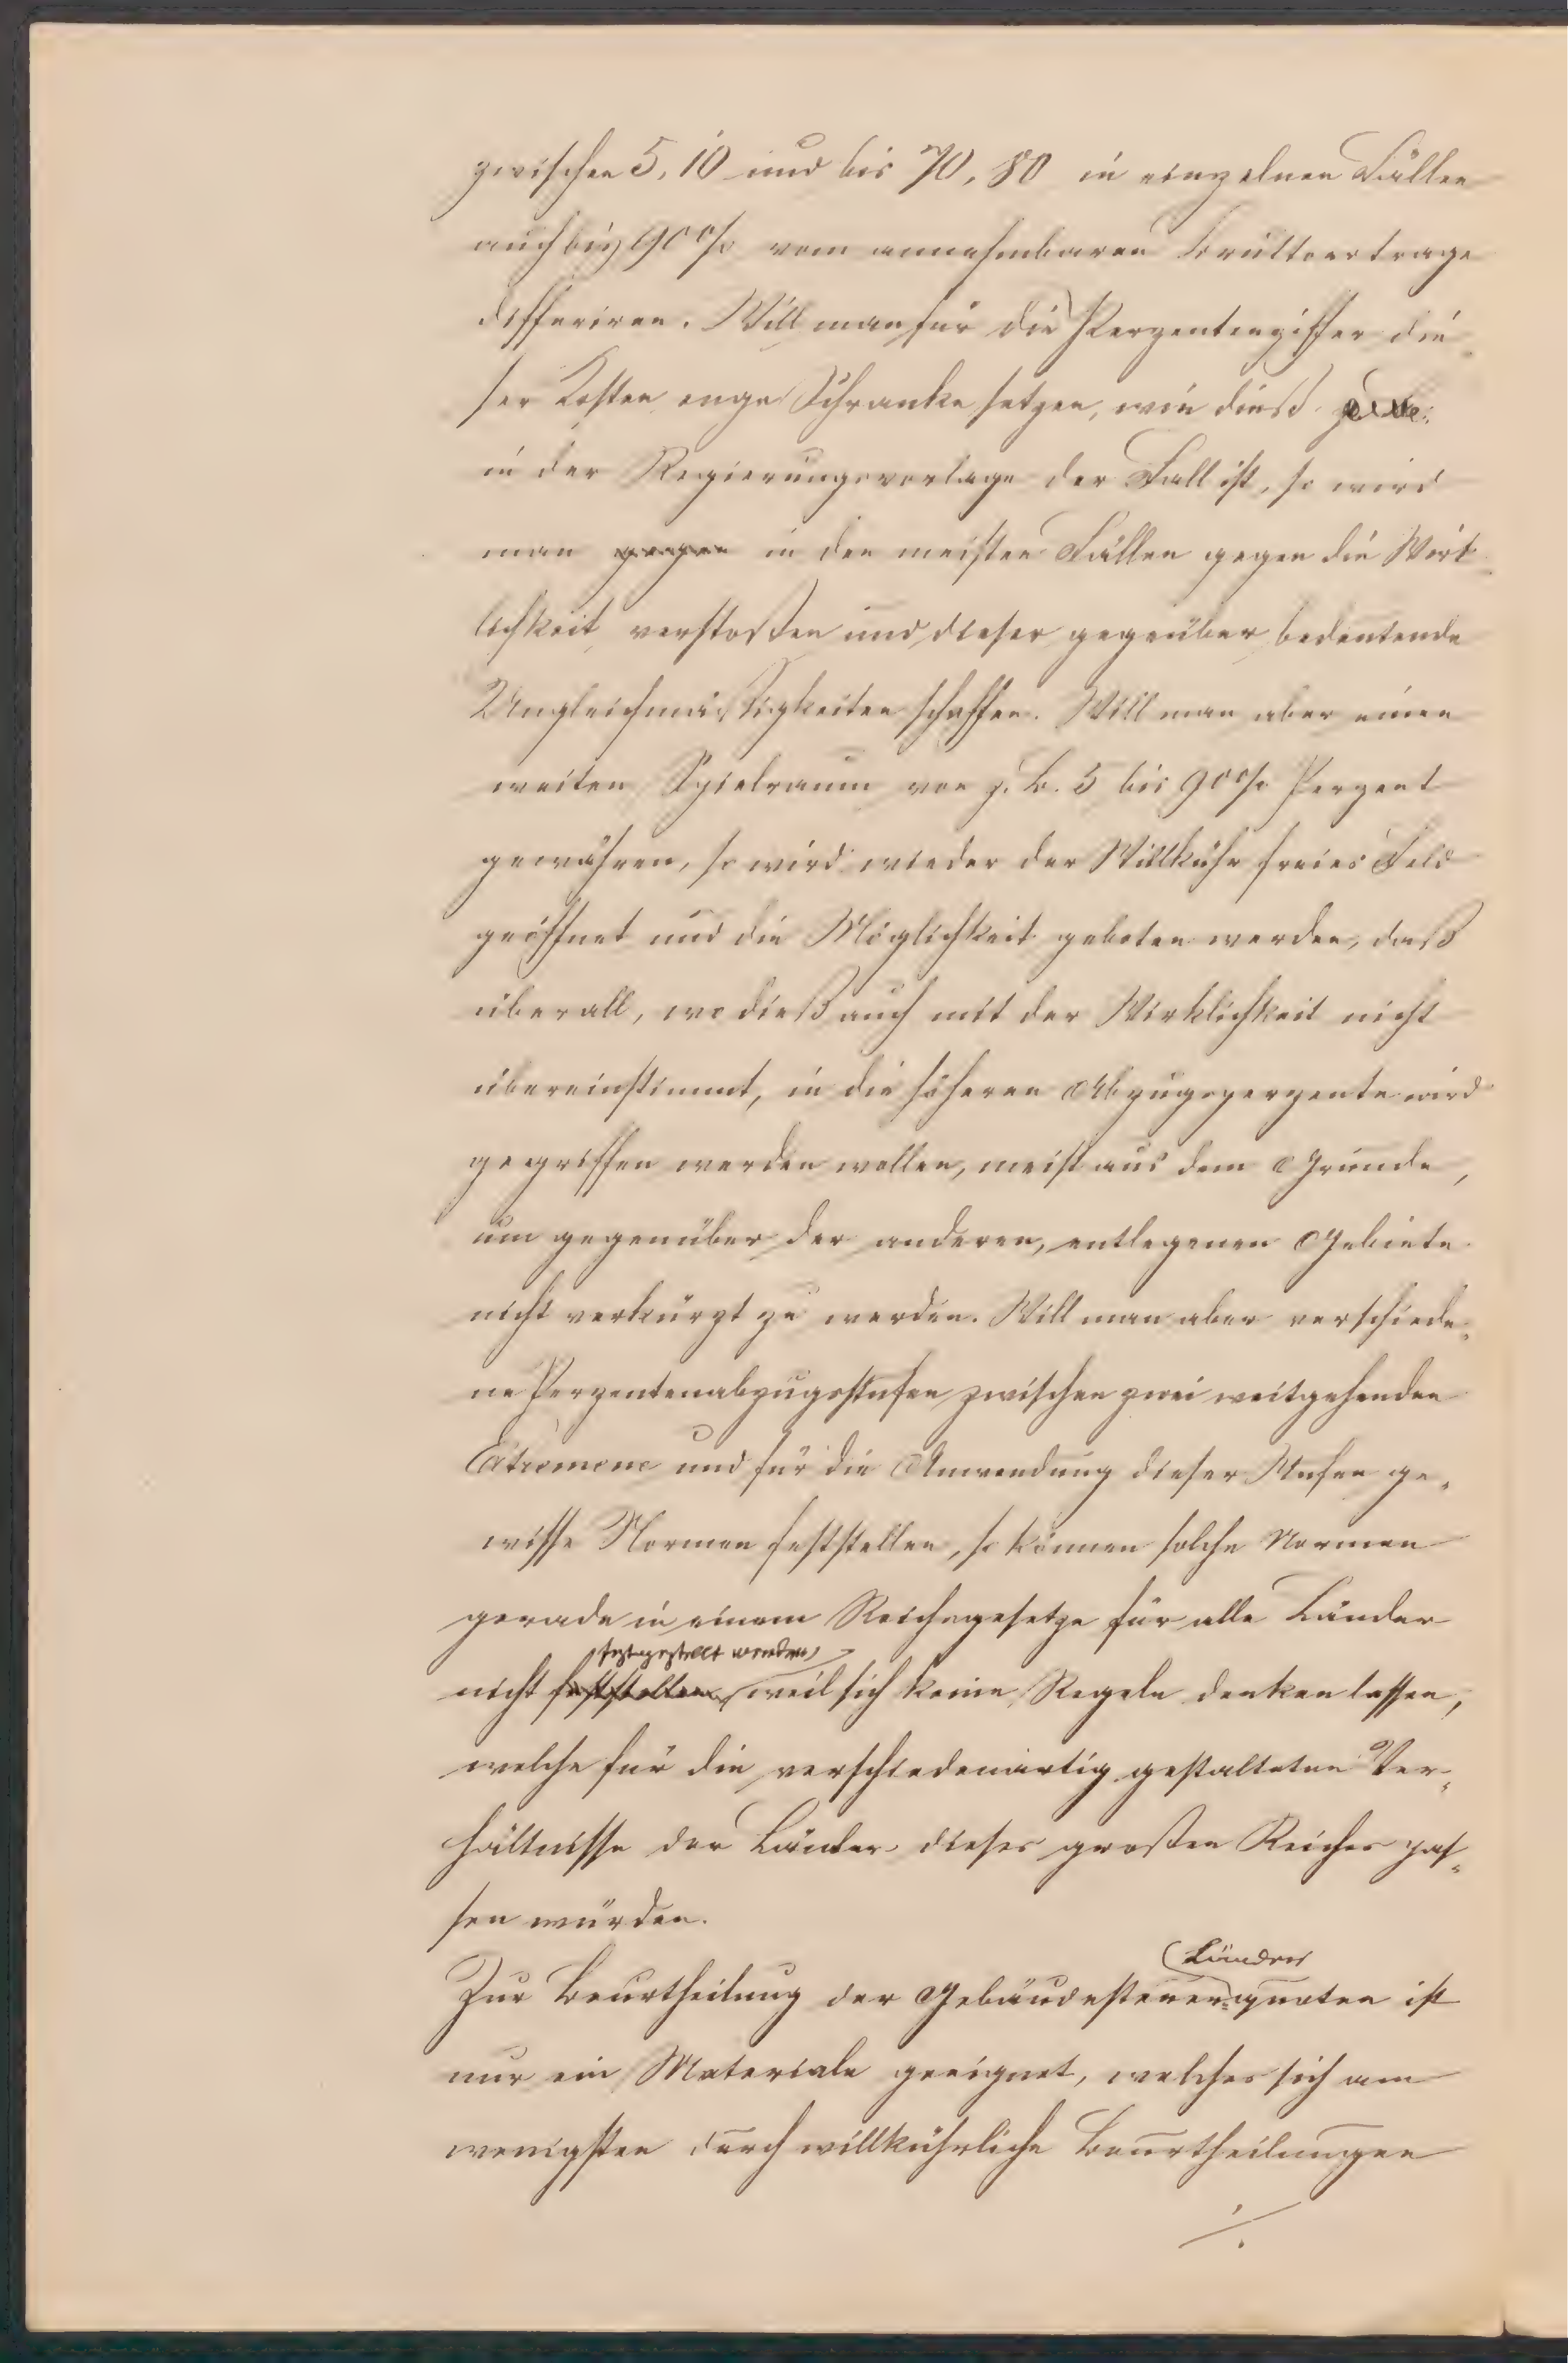 zwischen 5, 10 und bis 70, 80 in einzelnen Fällen
auch bis 90% vom annehmbaren Bruttoertrage
differiren. Will man für die Perzentenziffer die-
ser Kosten enge Schranke setzen, wie dieß
in der Regierungsvorlage der Fall ist, so wird
man gegen in den meisten Fällen gegen die Wirk-
lichkeit verstoßen und dieser gegenüber bedeutende
Ungleichmäßigkeiten schaffen. Will man aber einen
weiten Spielraum von z. B. 5 bis 90% Perzent
gewähren, so wird wieder der Willkühr freies Feld
geöffnet und die Möglichkeit geboten werden, daß
überall, wo dieß auch mit der Wirklichkeit nicht
übereinstimmt, in die höheren Abzugsperzente wird
gegriffen werden wollen, meist aus dem Grunde,
um gegenüber der anderen, entlegenen Gebiete
nicht verkürzt zu werden. Will man aber verschiede-
ne Perzentenabzugsstufen zwischen zwei weitgehenden
Extremene und für die Anwendung dieser Stufen ge-
wisse Normen feststellen, so können solche Normen
gerade in einem Reichsgesetze für alle Länder
festgestellt werden,
nicht feststellen, weil sich keine Regeln denken lassen,
welche für die verschiedenartig gestalteten Ver-
hältnisse der Länder dieses großen Reiches pas-
sen würden.
Länder
Zur Beurtheilung der Gebäudesteuer-quoten ist
nur ein Materiale geeignet, welches sich am
wenigsten durch willkührliche Beurtheilungen
./.